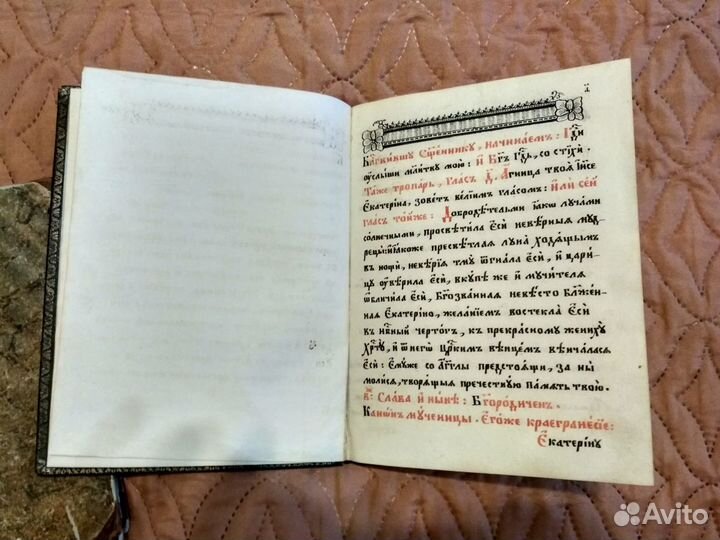 а҃
Бл҃гвившу сщ҃еннику, начинаем: Гд҃и
оуслыши мл҃итву мою: и Бг҃ъ Гд҃ь, со стїхи.
Таже тропарь, гласъ д҃. Агница твоѧ Іи҃се
Екатерїна, зоветъ велїим гласом: Или сей
гласъ тойже: Добродѣтельми ꙗко лучами
солнечными, просвѣтила еси невѣрныѧ муд
рецы: и ꙗкоже пресвѣтлаѧ луна ходѧщым
въ нощи, невѣрїѧ тму ѿгнала еси, и цари
цу оувѣрила еси, вкупѣ же и мучителѧ
ѡбличила еси, Бг҃озваннаѧ невѣсто бл҃жен
наѧ Екатерїно, желанїем востекла еси
въ нб҃ный чертогъ, къ прекрасному жениху
Хрт҃у, и ѿ него цр҃ским вѣнцем вѣнчаласѧ
еси: Емуже со аг҃глы предстоѧщи, за ны
молисѧ, творѧщыѧ пречестную памѧть твою.
в҃: Слава и нынѣ: Бг҃ородиченъ.
Канѡнъ мученицы. Егоже краегранесїе:
Екатерїну
Avito